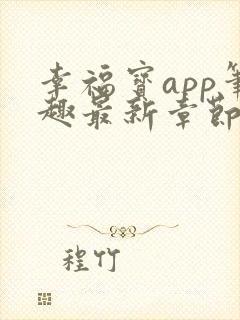 幸福寳app筆
趣最新章節
程竹